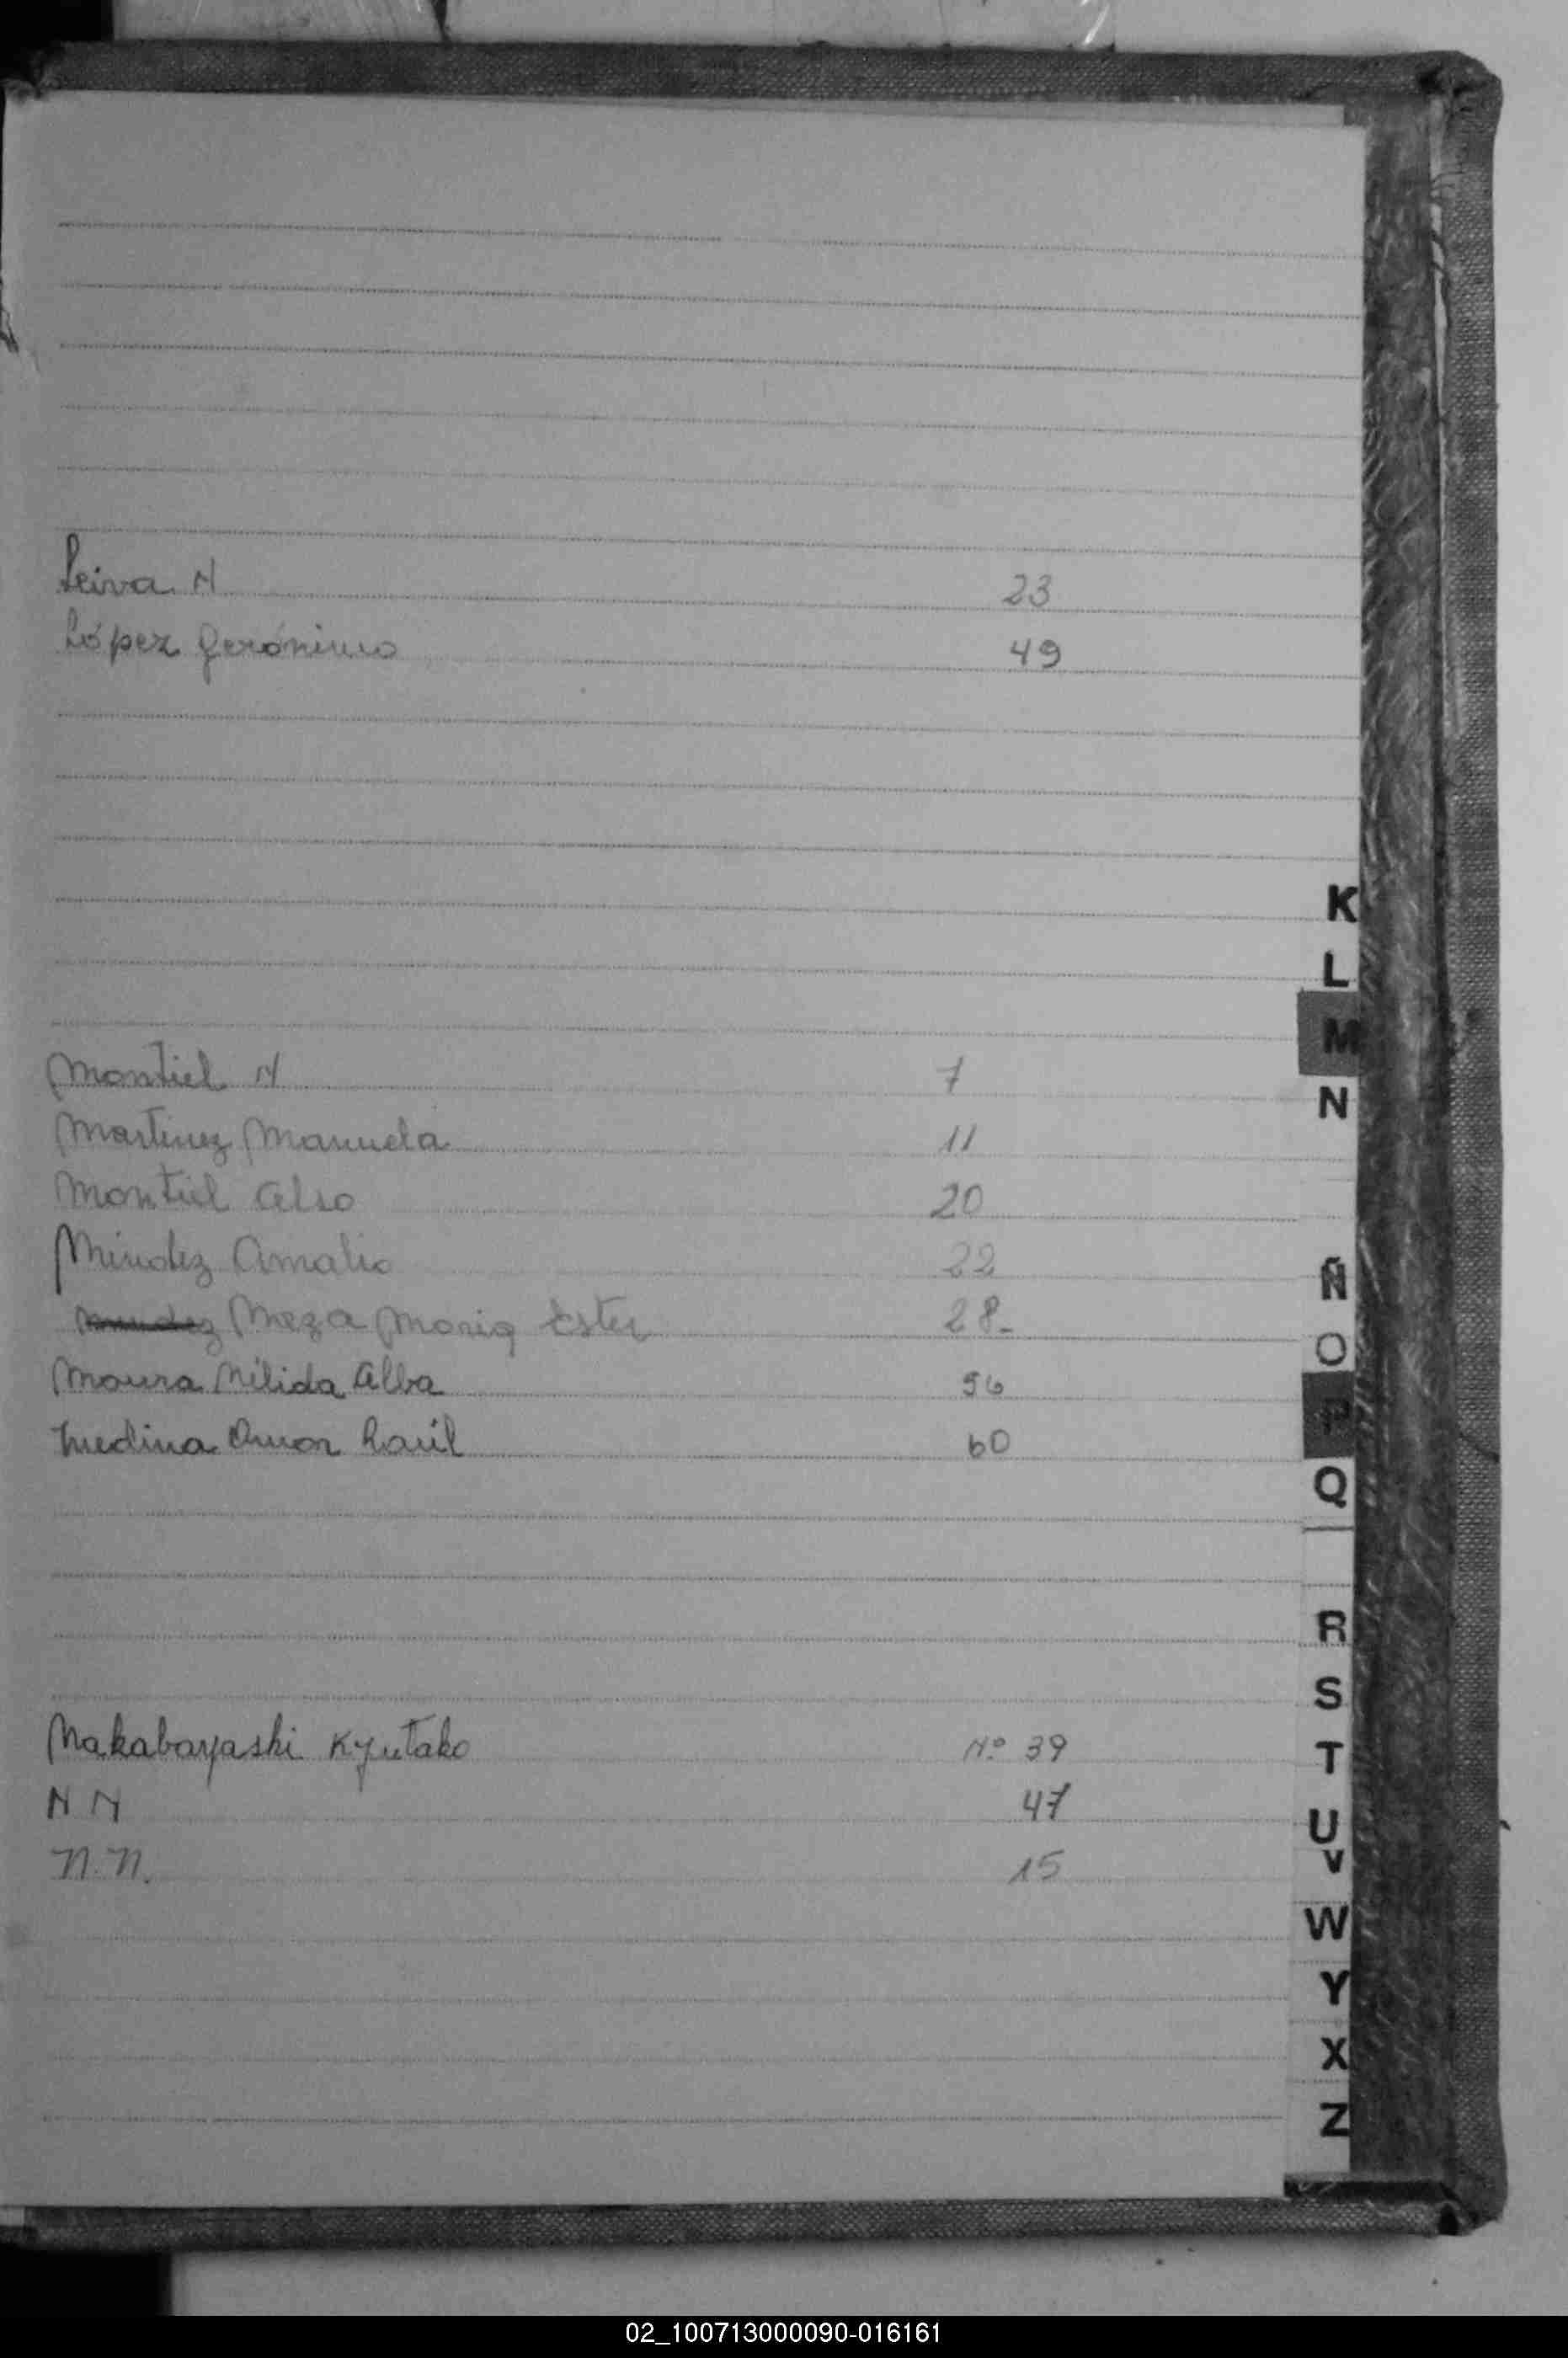 Leiva N 23
López Gerónimo 49
K
L
M
N
Montiel N 7
Martinez Manuela 11
Montiel 20
Méndez Amalia 22
Meza Maria Ester 28-
Moura Nélida Alba 56
Medina Omar Raúl 60
Ñ
O
P
Q
R
S
T
U
V
W
Y
X
Z
Nakabayashi Kyutako Nº 39
N N 47
N.N. 15
02_100713000090-016161